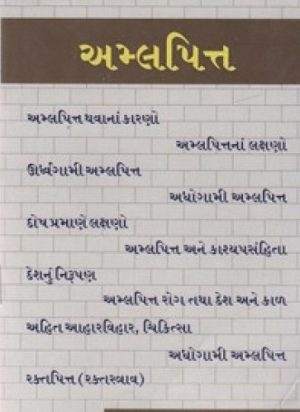 અમ્લપિત્ત
અમ્લપિત્ત થવાનાં કારણો
અમ્લપિત્તનાં લક્ષણો
ઊર્ધ્વગામી અમ્લપિત્ત
અધોગામી અમ્લપિત્ત
દોષ પ્રમાણે લક્ષણો
અમ્લપિત્ત અને કાશ્યપસંહિતા
દેશનું નિરૂપણ
અમ્લપિત્ત રોગ તથા દેશ અને કાળ
અહિત આહારવિહાર, ચિકિત્સા
અધોગામી અમ્લપિત્ત
રક્તપિત્ત (રક્તસ્ત્રાવ)